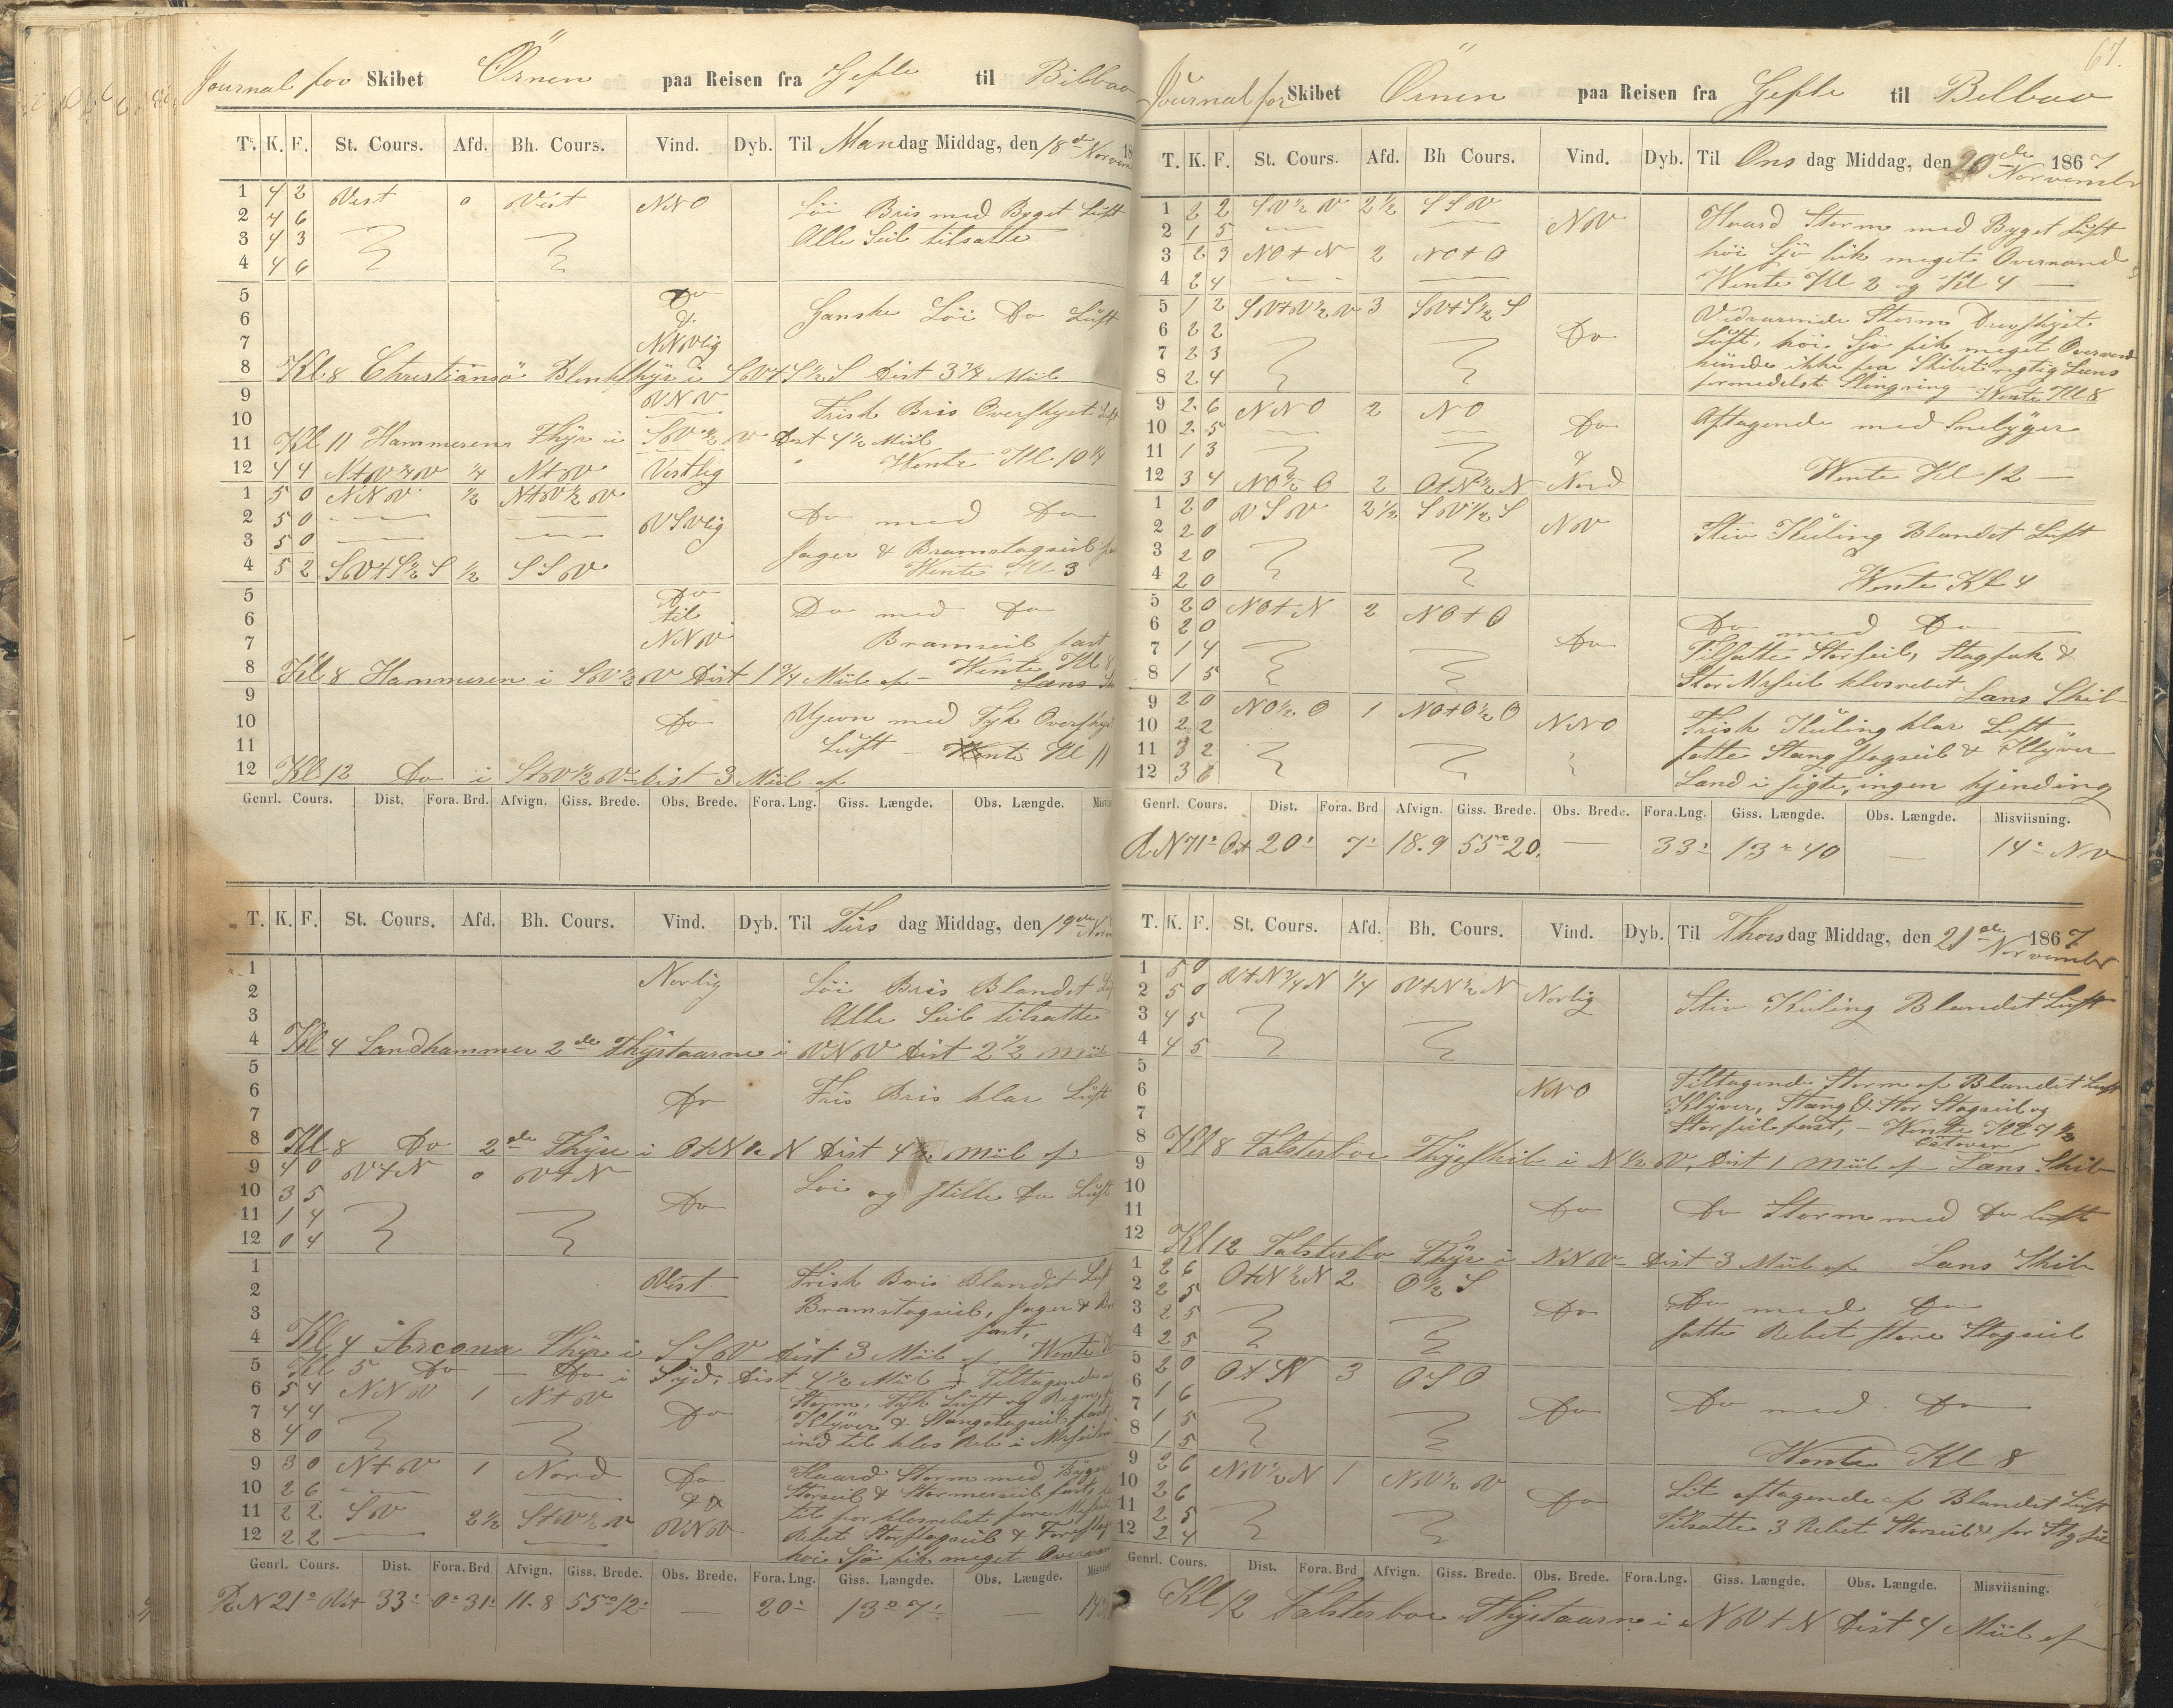 Journal for Skibet Örnen paa Reisen fra Gefle til Bilbao
T. K. F. St. Cours. Afd. Bh. Cours. Vind. Dyb. Til Mandag Middag, den 18de Norvember
1 4 2 Vest 0 Vest NNO Löi Bris med Byget Luft
2 4 6 Alle Seil tilsatte
3 4 3
4 4 6
5 Do
6 Ganske Löi Do Luft
7 NNVlig
8 Kl 8 Christiansö Blinkfhÿr i SV+S½S Dist 3¾ Miil
9 VNV Frisk Bris Overskyet Luft
10
11 Kl 11 Hammerens Fhÿr i SV½V Dist 4½ Miil
12 4 4 N+V¾V ¼ N+V Vestlig Wente Kl 10¼
1 5 0 NNV ½ N+V½V
2 5 0 VSVlig Do med Do
3 5 0 Jager & Bramstagseil
4 5 2 SV+S½S ½ SSV Wente Kl 3
5 Do
6 til Do med Do
7 NNV Bramseil fast
8 Kl 8 Hammeren i SV½V Dist 1¾ Miil af - Wente Kl 8
Læns
9
10 Do Ujevn med Tyk Overskyet
11 Luft - Wente Kl 11
12 Kl 12 Do i Dist 3 Miil af
Genrl. Cours. Dist. Fora. Brd. Afvign. Giss. Brede. Obs. Brede. Fora. Lng. Giss. Længde. Obs. Længde.
T. K. F. St. Cours. Afd. Bh. Cours. Vind. Dyb. Til Tirsdag Middag, den 19de
1 Norlig Löi Bris Blandet
2
3 Alle Seil tilsatte
4 Kl 4 Sandhammer 2de Fhÿrtaarne i VNV Dist 2½ Miil
5
6 Do Fris Bris klar Luft
7
8 Kl 8 Do 2de Fhÿre i N Dist Miil af
9 4 0 V+N 0 V+N
10 3 5 Do Löi og stille Do Luft
11 1 4
12 0 4
1 Vest Frisk Bris Blandet Luft
2 Bramstagseil, Jager &
3 fast,
4 Kl 4 Arcona Fhÿr i SSV Dist 3 Miil af Wente
5 Kl 5 Do - Do i Sÿd. Dist 4½ Miil Tiltagende
6 5 4 NNV 1 N+V Storm, Tyk Luft og Regn,
7 4 4 Do Klÿver & Stangstagseil fast,
8 4 0 ind til klos Reb i
9 3 0 N+V 1 Nord Do Haard Storm med Byger
10 2 6 Storseil & fast,
11 2 2 SV 2½ S+V½V VNV
12 2 2 Rebet Storstagseil &
höi Sjö fik meget
Genrl. Cours. Dist. Fora. Brd Afvign. Giss. Brede. Obs. Brede. Fora. Lng. Giss. Længde. Obs. Længde.
N 21° Vst 33' 0° 31' 11.8 55° 12' - 20' 13° 7' -
67.
Journal for Skibet Örnen paa Reisen fra Gefle til Bilbao
T. K. F. St. Cours. Afd. Bh Cours. Vind. Dyb. Til Onsdag Middag, den 20de Norvember 1867
1 2 2 SV½V 2½ SSV Haard Storm med Byget Luft
2 1 5 NV höi Sjö fik meget Overvand
3 2 3 NO+N 2 NO+O Wente Kl 2 og Kl 4 -
4 2 4
5 1 2 SV+V½V 3 SV+S½S Vedvarende Storm
6 2 2 Do Luft, höi Sjö fik meget Overvand
7 2 3 kunde ikke faa Skibet rigtig Læns
8 2 4 formedelst Slingring - Wente Kl 8
9 2 6 NNO 2 NO Aftagende med Snebÿger
10 2 5 Do
11 1 3
12 3 4 NO½O 2 O+N½N Nord Wente Kl 12 -
1 2 0 VSV 2½ SV½S NV Stiv Kuling Blandet Luft
2 2 0
3 2 0
4 2 0 Wente Kl 4
5 2 0 NO+N 2 NO+O Do med Do
6 2 0 Do Tilsatte Storseil, Stagfok &
7 1 4 Stor Mrseil klosrebet
8 1 5 Læns Skib
9 2 0 NO½O 1 NO+O½O NNO Frisk Kuling klar Luft
10 2 2 satte Stangstagseil & Klÿver
11 3 2 Land i sigte, ingen kjending
12 3 6
Genrl. Cours. Dist. Fora. Brd Afvign. Giss. Brede. Obs. Brede. Fora.Lng. Giss. Længde. Obs. Længde. Misviisning.
N 71° Ost 20' 7' 18.9 55° 20' - 33' 13° 40 - 14° NV
T. K. F. St. Cours. Afd. Bh. Cours. Vind. Dyb. Til Thorsdag Middag, den 21de Norvember 1867
1 5 0 V+N¾N ¼ V+N½N Norlig Stiv Kuling Blandet Luft
2 5 0
3 4 5
4 4 5
5 Tiltagende Storm af Blandet Luft
6 NNO Klÿver, Stang & Stor Stagseil og
7 Storseil fast, - Wente Kl 7½
östover
8 Kl 8 Falsterboe Fhÿrskib i N½V, Dist 1 Miil af Læns Skib
9
10
11 Do Do Storm med Do Luft
12 Kl 12 Falsterbo Fhÿr i NNV Dist 3 Miil af Læns Skib
1 2 6 O+N½N 2 O½S Do med Do
2 2 5 Do satte Rebet store Stagseil
3 2 5
4 2 5
5 2 0 3 OSO
6 1 6 Do Do med Do
7 1 5
8 1 5 Wente Kl 8
9 2 6 NV½N 1 NV½V Lit aftagende af Blandet Luft
10 2 6 Do Tilsatte 3 Rebet Storseil & for
11 2 5
12 2 4
Genrl. Cours. Dist. Fora. Brd Afvign. Giss. Brede. Obs. Brede. Fora.Lng. Giss. Længde. Obs. Længde. Misviisning.
Kl 12 Falsterboe Fhÿrtaarn i NV+N Dist 4 Miil af